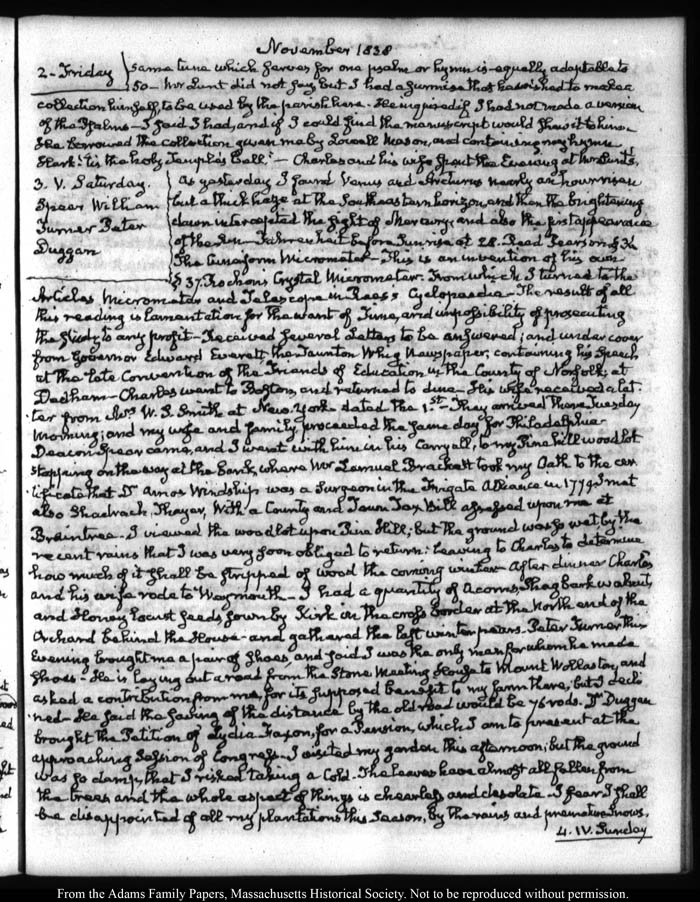 November 1838
2. Friday
same tune which serves for one psalm or hymn is equally adaptable to
50 — Mr Lunt did not say, but I had a surmise that he wished to make a
collection himself, to be used by the parish here. He enquired if I had not made a version
of the Psalms — I said I had, and if I could find the manuscript would shew it to him.
He borrowed the collection given me by Lowell Mason, and containing my hymn
Hark! 'tis the holy Temple's Bell." — Charles and his wife spent the Evening at Mr Lunt's.
3. V. Saturday.
Spear William
Turner Peter
Duggan
As yesterday I found Venus and Arcturus nearly an hour risen
but a thick haze at the Southeastern horizon, and then the brightening
dawn intercepted the sight of Mercury; and also the first appearance
of the Sun — Fahrenheit before Sunrise at 28. Read Pearson § 36
The Cuneiform Micrometer — This is an invention of his own
§ 37. Rochon's Crystal Micrometer. From which I turned to the
Articles Micrometer and Telescope in Rees's Cyclopaedia — The result of all
this reading is lamentation for the want of Time, and impossibility of prosecuting
the study to any profit — Received several Letters to be answered; and under cover
from Governor Edward Everett the Taunton Whig Newspaper, containing his Speech
at the late Convention of the Friends of Education in the County of Norfolk, at
Dedham — Charles went to Boston, and returned to dine. His wife received a let-
ter from Mrs W. S. Smith at New-York dated the 1st — They arrived there Tuesday
Morning; and my wife and family proceeded the same day for Philadelphia
Deacon Spear came, and I went with him in his Carryall, to my Pine hill wood lot
stopping on the way at the bank, where Mr Lemuel Brackett took my Oath to the cer-
tificate that Dr Amos Windship was a Surgeon in the Frigate Alliance in 1779. I met
also Shadrach Thayer, with a County and Town Tax Bill assessed upon me at
Braintree. I viewed the wood lot upon Pine Hill; but the ground was so wet by the
recent rains that I was very soon obliged to return: leaving to Charles to determine
how much of it shall be stripped of wood the coming winter — After dinner Charles
and his wife rode to Weymouth — I had a quantity of Acorns, Shagbark walnuts,
and Honey locust seeds sown by Kirk in the cross border at the North end of the
Orchard behind the House — and gathered the last winter pears. Peter Turner this
Evening brought me a pair of shoes, and said I was the only man for whom he made
shoes — He is laying out a road from the Stone Meeting House to Mount Wollaston, and
asked a contribution from me, for its supposed benefit to my farm there, but I decli-
ned — He said the saving of the distance by the old road would be 76 rods. Dr Duggan
brought the Petition of Lydia Faxon, for a Pension, which I am to present at the
approaching Session of Congress. I visited my garden this afternoon; but the ground
was so damp, that I risked taking a Cold. The leaves have almost all fallen from
the trees and the whole aspect of things is chearless and desolate. I fear I shall
be disappointed of all my plantations this Season, by the rains and premature Snows.
4. IV. Sunday
From the Adams Family Papers, Massachusetts Historical Society. Not to be reproduced without permission.